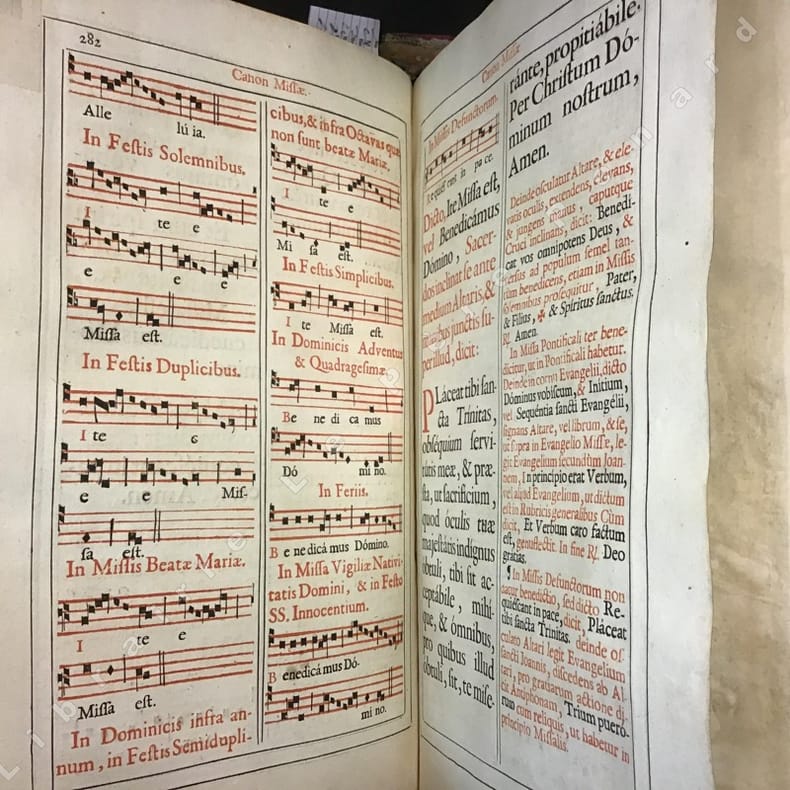 282
Canon Missæ.
Alle lú ia.
In Festis Solemnibus.
I te e
e e e
Missa est.
In Festis Duplicibus.
I te e
e e Mis-
sa est.
In Missis Beatæ Mariæ.
I te e
Missa est.
In Dominicis infra an-
num, in Festis Semidupli-
cibus, & infra Octavas quæ
non sunt beatæ Mariæ.
I te e
Mi sa est.
In Festis Simplicibus.
I te Missa est.
In Dominicis Adventus
& Quadragesimæ.
Be ne di ca mus
Dó mi no.
In Feriis.
B e ne dicá mus Dómino.
In Missa Vigiliæ Nativi-
tatis Domini, & in Festo
SS. Innocentium.
B enedicá mus Dó-
mi no.
Canon Missæ
In Missis Defunctorum.
Requiescant in pa ce.
Dicto, Ite Missa est,
vel Benedicámus
Dómino, Sacer-
dos inclinat se ante
medium Altaris, &
manibus junctis su-
per illud, dicit:
PLáceat tibi san-
cta Trínitas,
obséquium servi-
tútis meæ, & præ-
sta, ut sacrificium,
quod óculis tuæ
majestátis indígnus
óbtuli, tibi sit ac-
ceptábile, mihí-
que, & ómnibus,
pro quibus illud
óbtuli, sit, te mise-
ránte, propitiábile.
Per Christum Dó-
minum nostrum,
Amen.
Deinde osculatur Altare, & ele-
vatis oculis, extendens, elevans,
& jungens manus, caputque
Cruci inclinans, dicit: Benedi-
cat vos omnípotens Deus, &
versus ad populum semel tan-
tùm benedicens, etiam in Missis
solemnibus prosequitur, Pater,
& Fílius, ✠ & Spíritus sanctus.
℟. Amen.
In Missa Pontificali ter bene-
dicitur, ut in Pontificali habetur.
Deinde in cornu Evangelii, dicto
Dóminus vobíscum, & Inítium,
vel Sequéntia sancti Evangélii,
signans Altare, vel librum, & se,
ut supra in Evangelio Missæ, le-
git Evangelium secundùm Joan-
nem, In princípio erat Verbum,
vel aliud Evangelium, ut dictum
est in Rubricis generalibus Cùm
dicit, Et Verbum caro factum
est, genuflectit. In fine ℟. Deo
gratias.
¶ In Missis Defunctorum non
datur benedictio, sed dicto Re-
quiéscant in pace, dicit, Pláceat
tibi sancta Trínitas. deinde os-
culato Altari legit Evangelium
sancti Joannis, discedens ab Al-
tari, pro gratiarum actione di-
cit Antiphonam, Trium pueró-
rum cum reliquis, ut habetur in
principio Missalis.